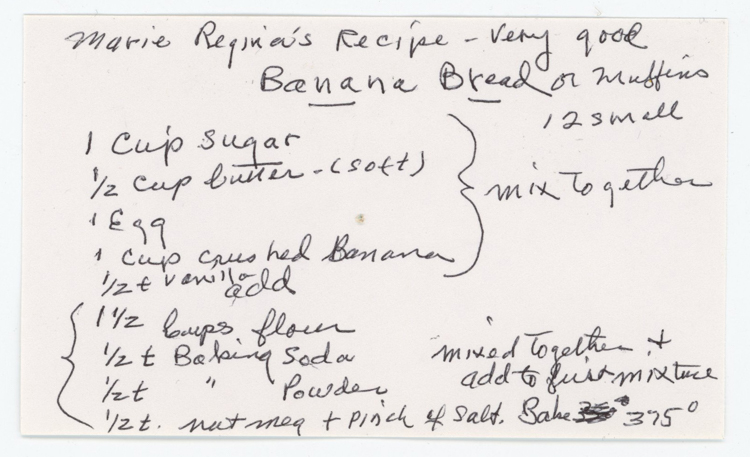 Marie Regina's Recipe - Very good
Banana Bread or Muffins
12 small
1 Cup sugar
1/2 cup butter - (soft)
1 Egg
1 cup crushed Banana
mix together
1/2 t vanilla
add
1 1/2 cups flour
1/2 t Baking Soda
1/2 t " Powder
mixed together +
add to first mixture
1/2 t. nutmeg + pinch of salt. Bake 375°